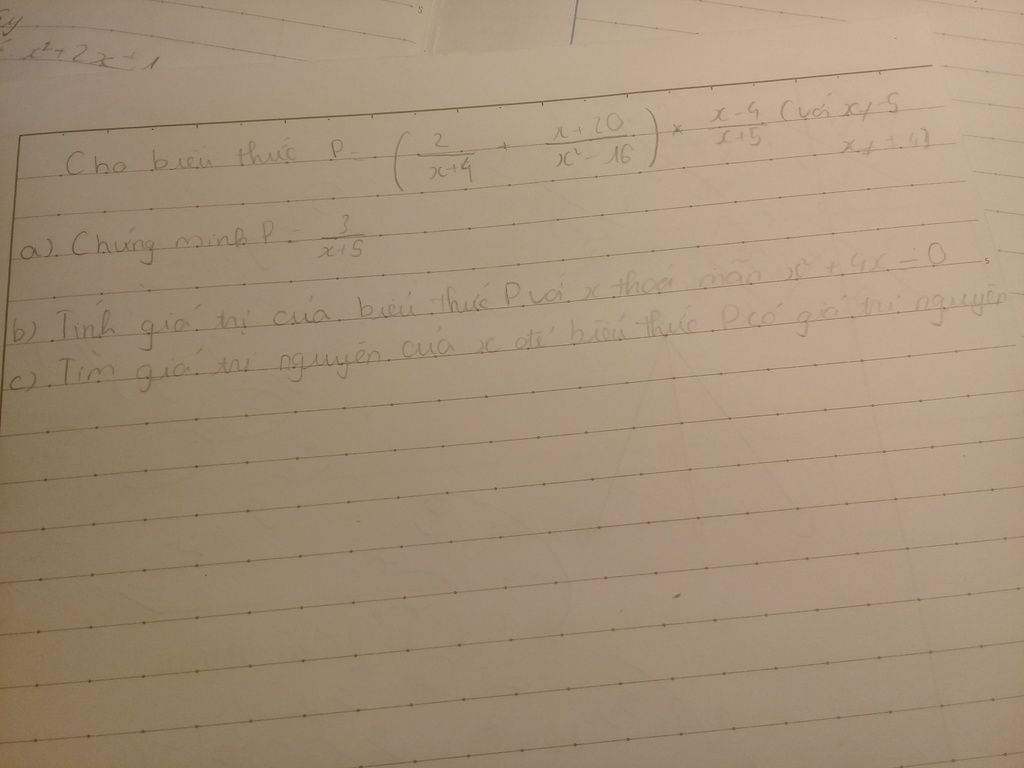 x²+2x+1
Cho biểu thức P = (2/(x+4) + (x+20)/(x²-16)) × (x-4)/(x+5) (với x≠-5
x≠±4)
a). Chứng minh P = 3/(x+5)
b) Tính giá trị của biểu thức P với x thoả mãn x² + 4x = 0
c). Tìm giá trị nguyên của x để biểu thức P có giá trị nguyên